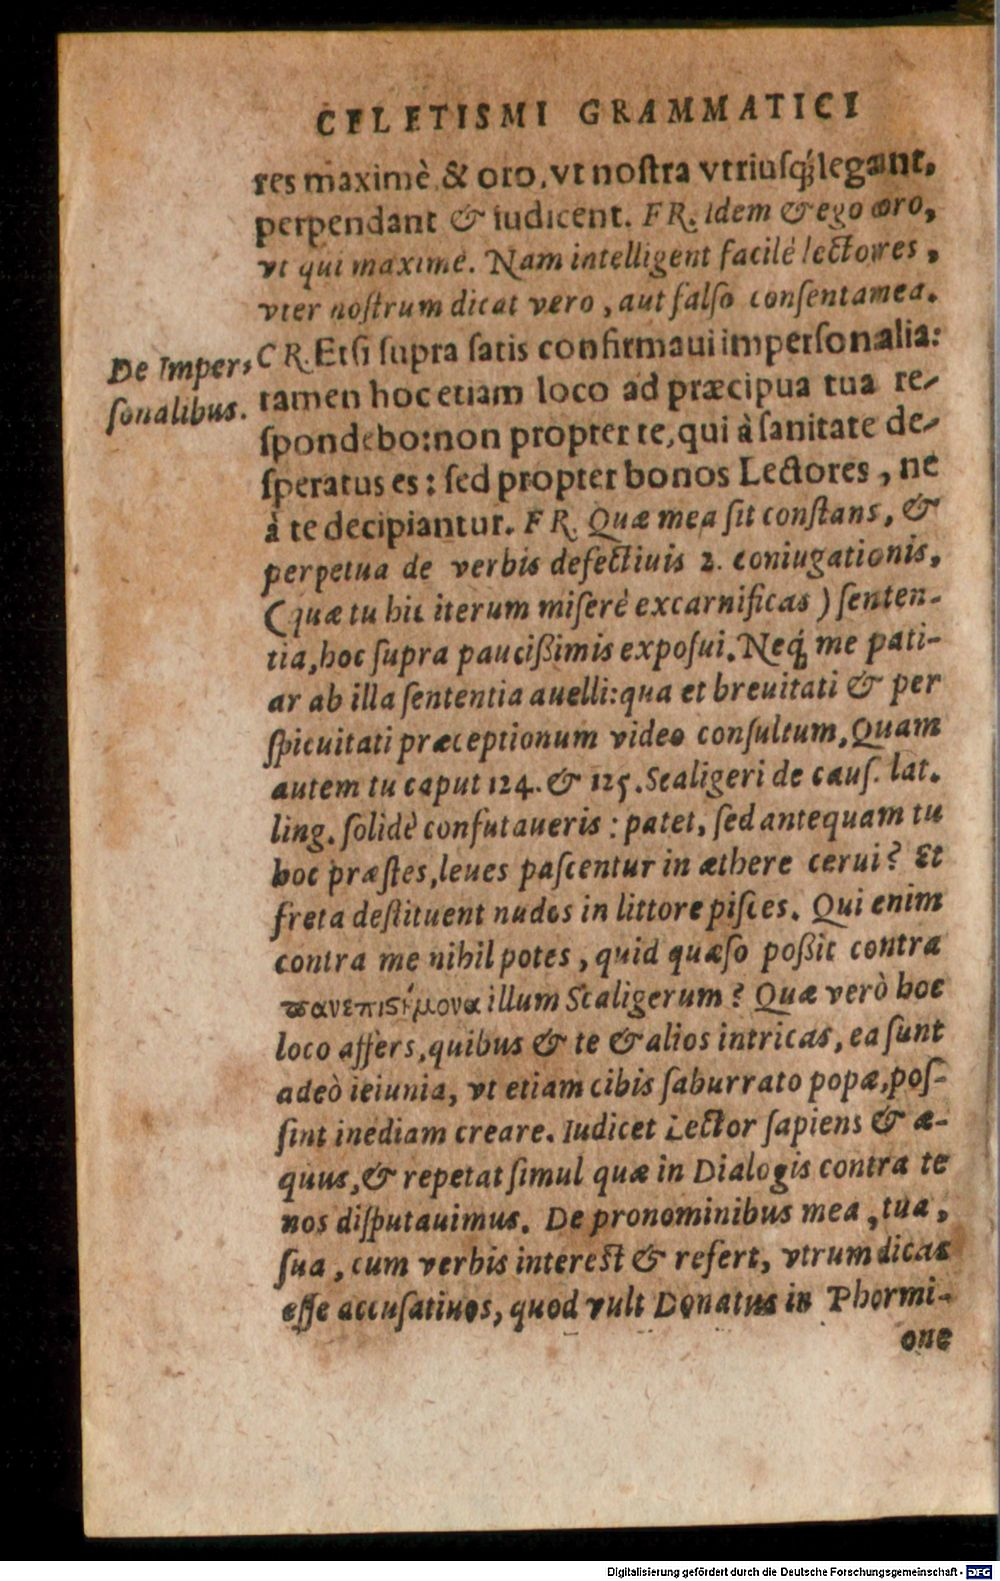 CELETISMI GRAMMATICI
res maximè & oro, vt nostra vtriusq́; legant,
perpendant & iudicent. FR. Idem & ego oro,
vt qui maximè. Nam intelligent facilè lectores,
vter nostrum dicat vero, aut falso consentamea.
De Imper-
sonalibus.
CR. Etsi supra satis confirmaui impersonalia:
tamen hoc etiam loco ad præcipua tua re-
spondebo: non propter te, qui à sanitate de-
speratus es: sed propter bonos Lectores, ne
à te decipiantur. FR. Quæ mea sit constans, &
perpetua de verbis defectiuis 2. coniugationis,
(quæ tu hic iterum miserè excarnificas) senten-
tia, hoc supra paucißimis exposui. Neq́; me pati-
ar ab illa sententia auelli: qua et breuitati & per
spicuitati præceptionum video consultum, Quam
autem tu caput 124. & 125. Scaligeri de caus. lat.
ling. solidè confutaueris: patet, sed antequam tu
hoc præstes, leues pascentur in æthere cerui? Et
freta destituent nudos in littore pisces. Qui enim
contra me nihil potes, quid quæso poßit contra
πανεπιστήμονα illum Scaligerum? Quæ verò hoc
loco affers, quibus & te & alios intricas, ea sunt
adeò ieiunia, vt etiam cibis saburrato popæ, pos-
sint inediam creare. Iudicet Lector sapiens & æ-
quus, & repetat simul quæ in Dialogis contra te
nos disputauimus. De pronominibus mea, tua,
sua, cum verbis interest & refert, vtrum dicas
esse accusatiuos, quod vult Donatus in Phormi-
one
Digitalisierung gefördert durch die Deutsche Forschungsgemeinschaft - DFG